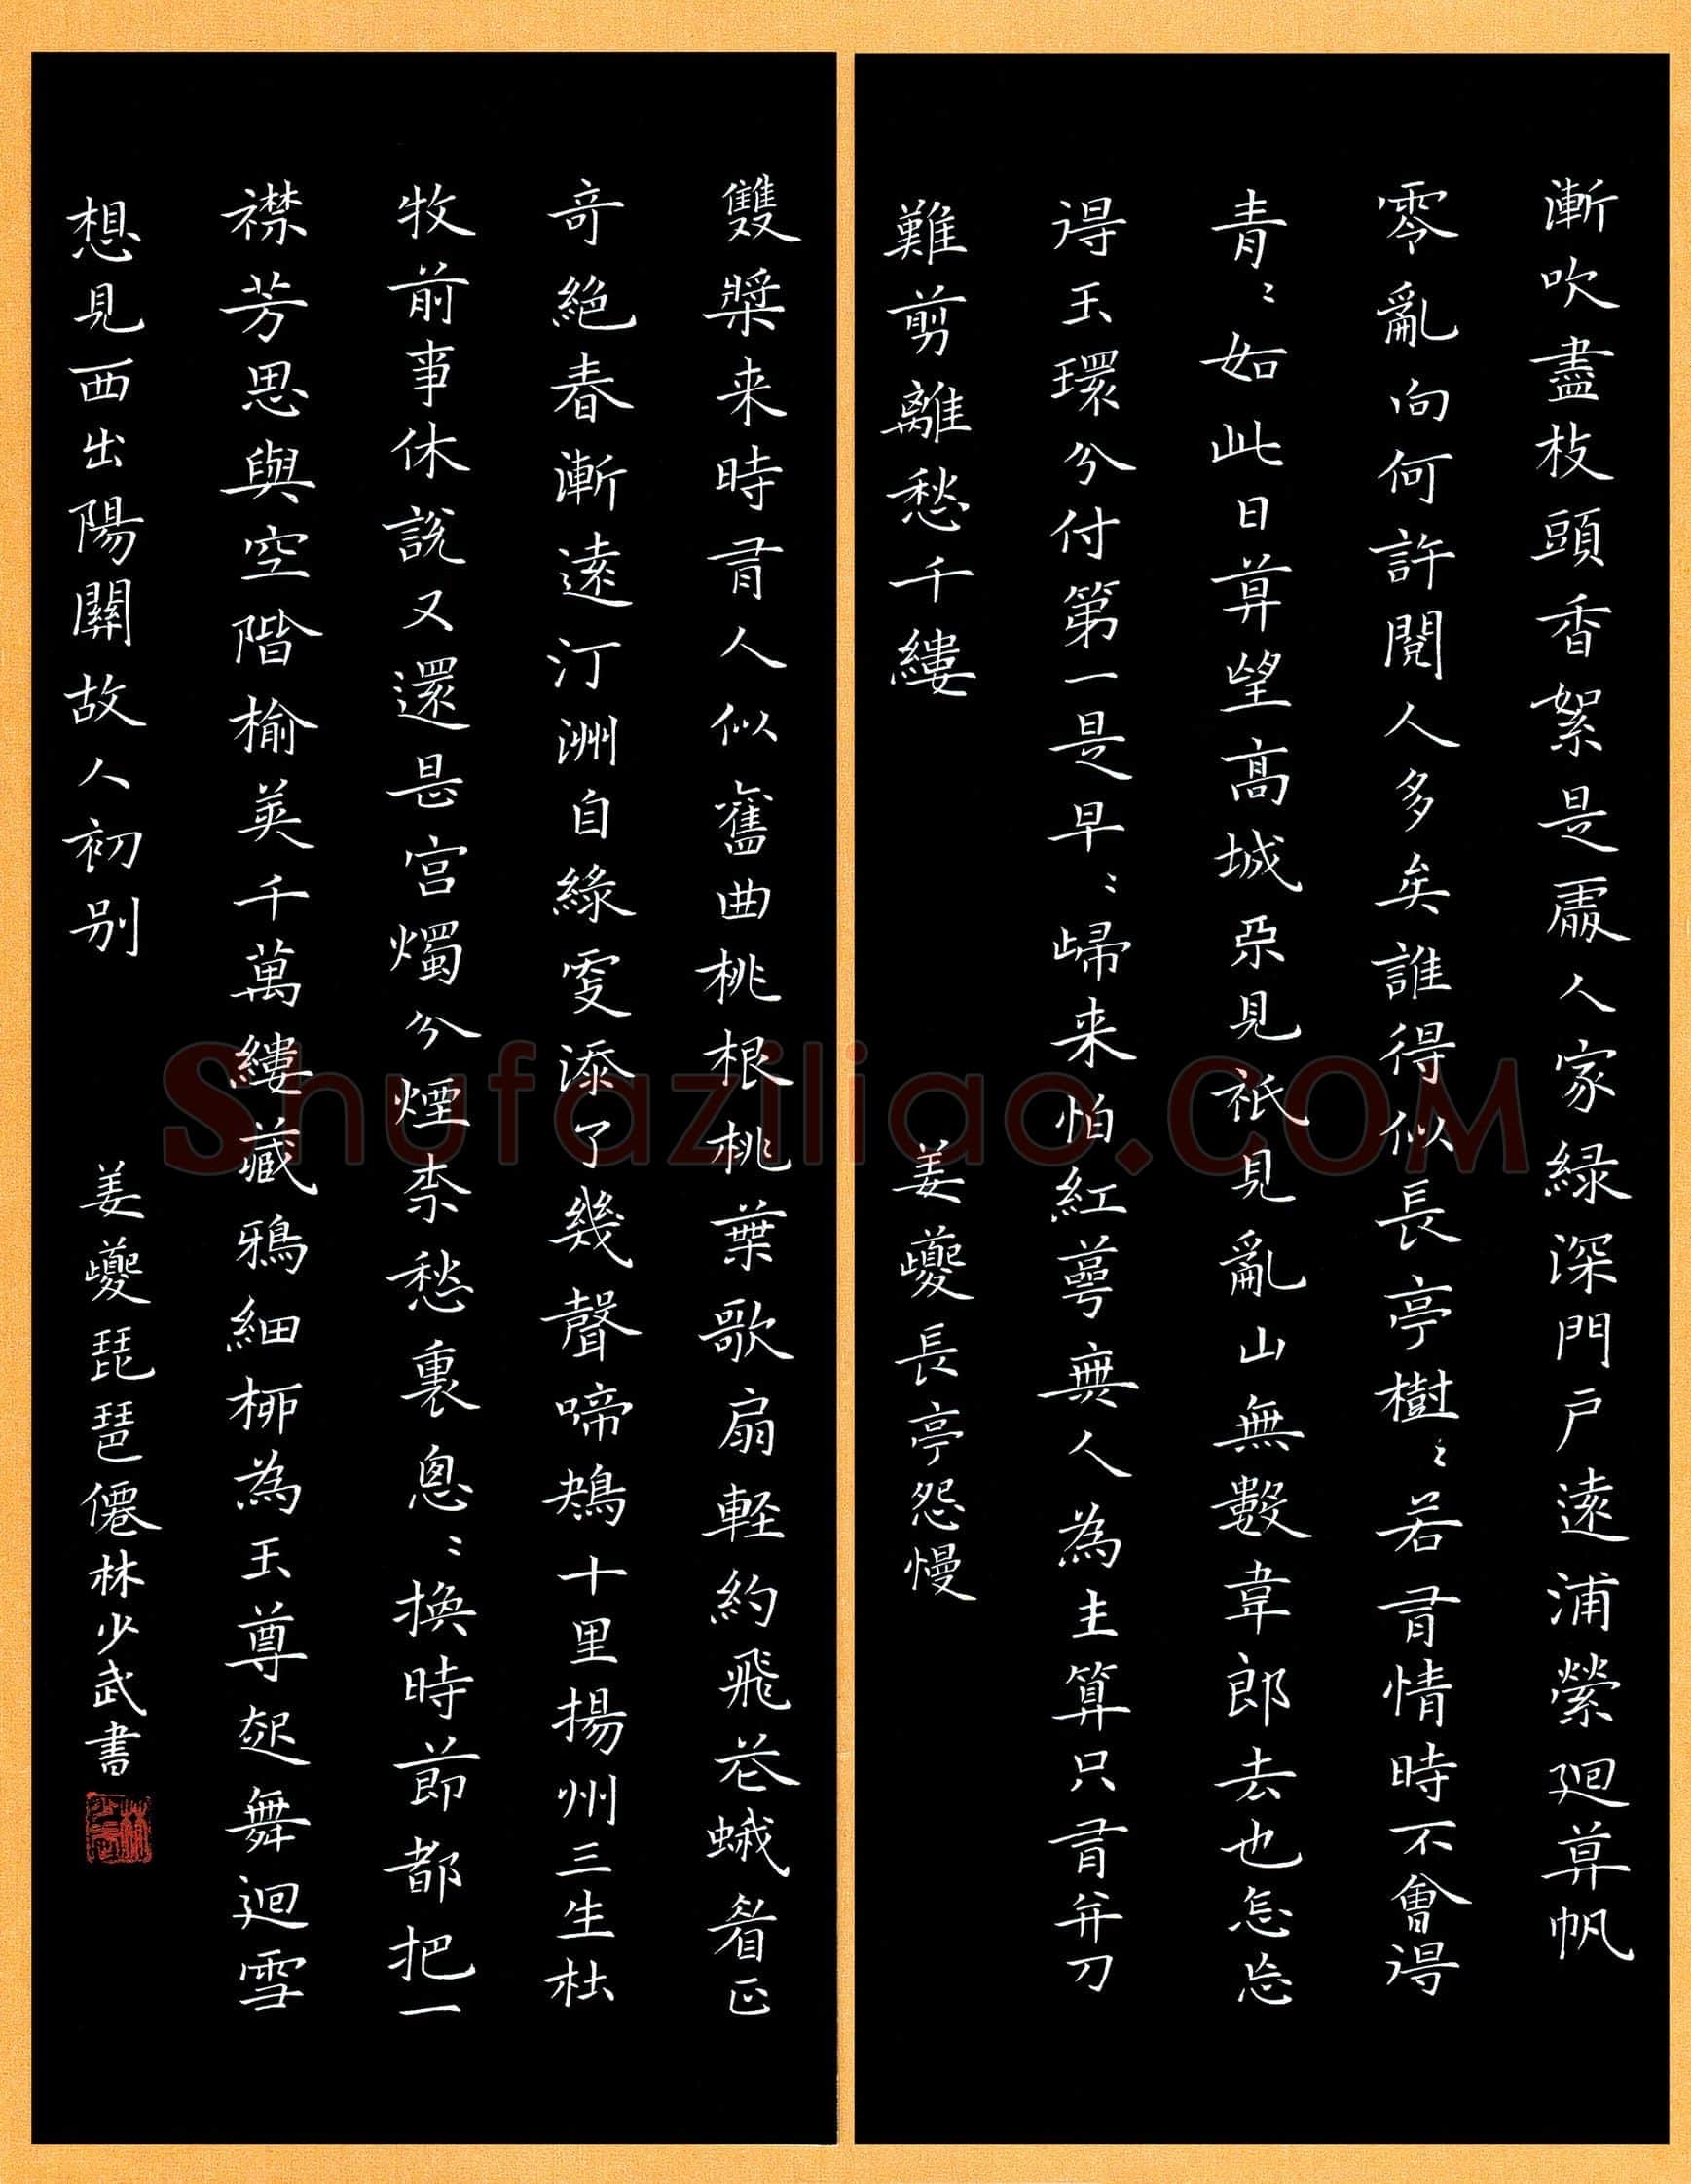 漸吹盡枝頭香絮是處人家緑深門戶遠浦縈迴算帆
零亂向何許閱人多矣誰得似長亭樹〻若有情時不會得
青〻如此日算望高城不見衹見亂山無數韋郎去也怎忘
得玉環分付第一是早〻歸来怕紅萼無人為主算只有并刀
難剪離愁千縷
姜夔長亭怨慢
雙槳来時有人似舊曲桃根桃葉歌扇輕約飛花蛾眉正
奇絕春漸遠汀洲自綠更添了幾聲啼鴂十里揚州三生杜
牧前事休說又還是宮燭分煙柰愁裏怱〻換時節都把一
襟芳思與空階榆莢千萬縷藏鴉細柳為玉尊起舞迴雪
想見西出陽關故人初別
姜夔琵琶僊林少武書
Shufaziliao.COM